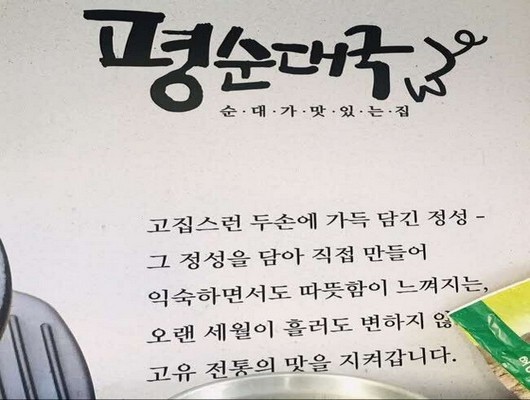 평순대국
순·대·가·맛·있·는·집
고집스런 두손에 가득 담긴 정성 -
그 정성을 담아 직접 만들어
익숙하면서도 따뜻함이 느껴지는,
오랜 세월이 흘러도 변하지 않
고유 전통의 맛을 지켜갑니다.